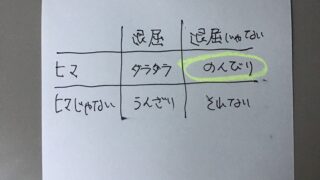 退屈 退屈じゃない
ヒマ ダラダラ のんびり
ヒマじゃない うんざり それでない